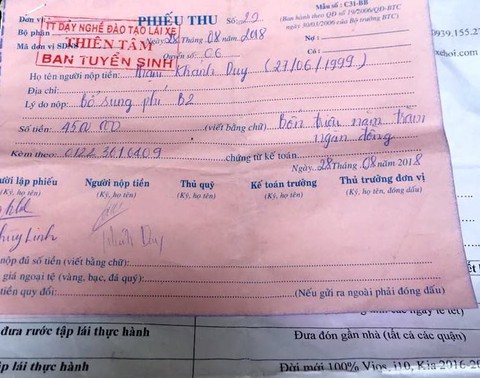 Đơn vị
Bộ phận
Mã đơn vị SDNS
TT DẠY NGHỀ ĐÀO TẠO LÁI XE
THIÊN TÂM
BAN TUYỂN SINH
PHIẾU THU
Số: 29
Ngày 28 Tháng 08 năm 2018
Quyển số: C6
Nợ:
Có:
Mẫu số : C31-BB
(Ban hành theo QĐ số 19/2006/QĐ-BTC
30/03/2006 của Bộ trưởng BTC)
939.155.2
Họ tên người nộp tiền: Khánh Duy (27/06/1999)
Địa chỉ:
Lý do nộp: Bổ sung phí B2
Số tiền: (viết bằng chữ) Bốn triệu năm trăm
ngàn đồng
Kèm theo: chứng từ kế toán
Ngày 28 Tháng 08 năm 2018
ười lập phiếu Người nộp tiền Thủ quỹ Kế toán trưởng Thủ trưởng đơn vị
(Ký, họ tên) (Ký, họ tên) (Ký, họ tên) (Ký, họ tên) (Ký, họ tên, đóng dấu)
Linh Duy
nộp đủ số tiền (viết bằng chữ):
giá ngoại tệ (vàng, bạc, đá quý):
tiền quy đổi: (Nếu gửi ra ngoài phải đóng dấu)
đưa rước tập lái thực hành Đưa đón gần nhà (tất cả các quận)
p lái thực hành Đời mới 100% Vios, i10, Kia 2016-20